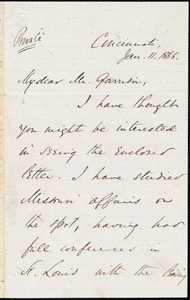 Private
Cincinnati,
Jan. 11. 1865.
My dear Mr. Garrison,
I have thought
you might be interested
in seeing the Enclosed
letter. I have studied
Missouri affairs on
the spot, having had
full conferences in
St. Louis with the